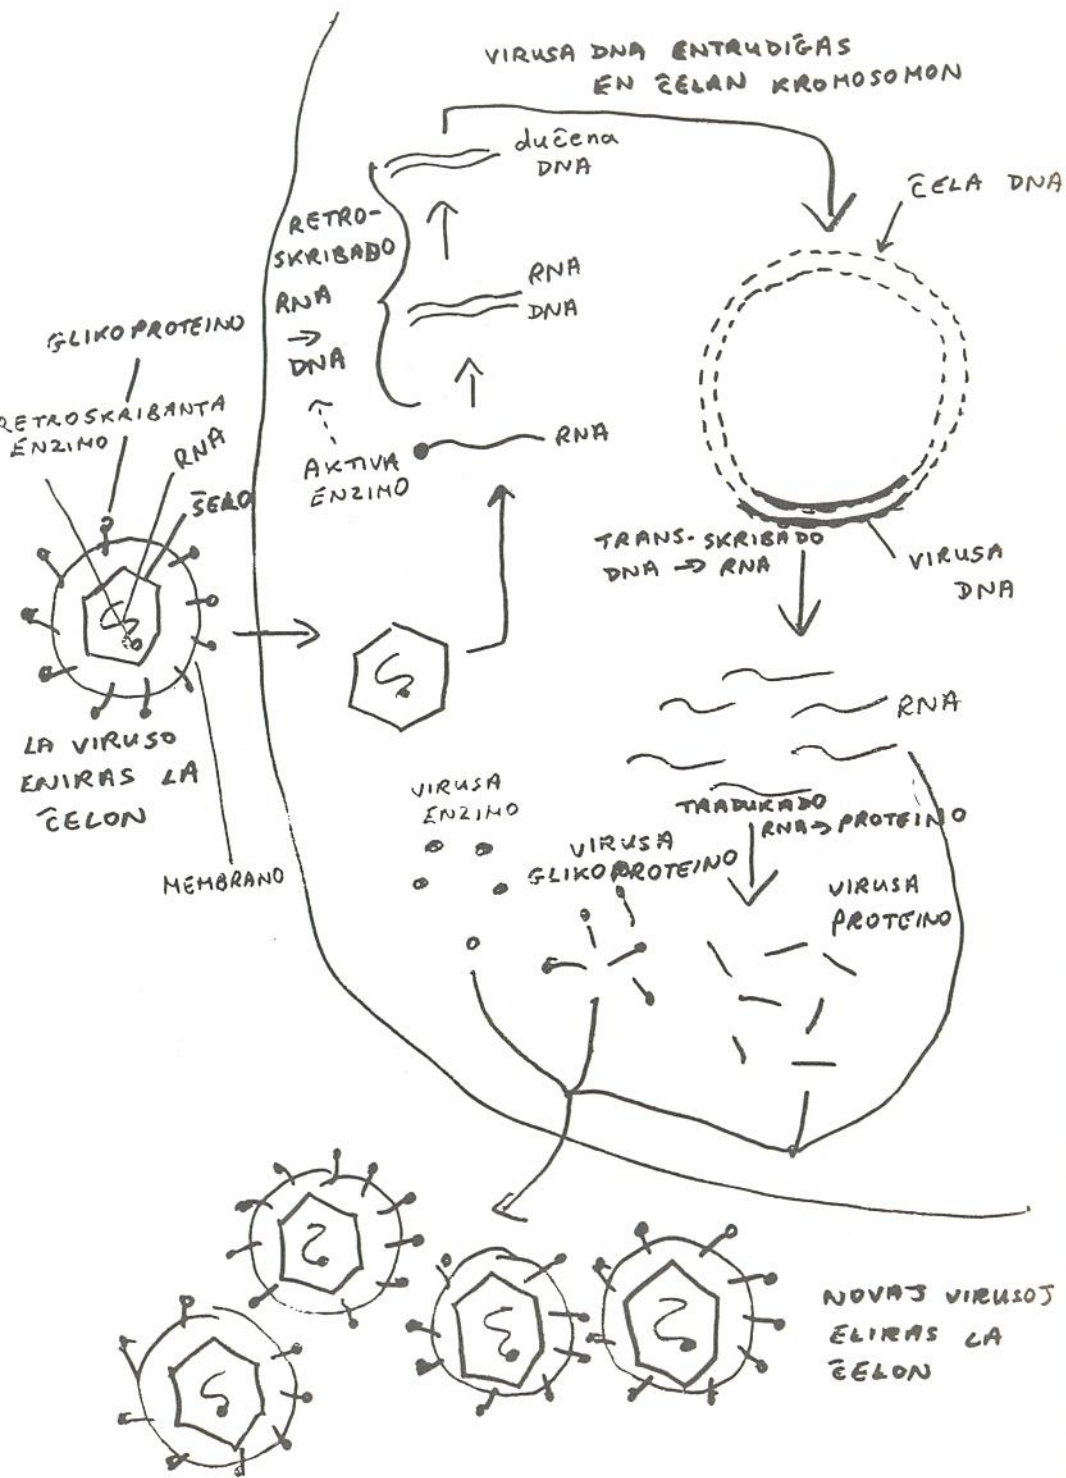 VIRUSA DNA ENTRUDIĜAS
EN ĈELAN KROMOSOMON
duĉena
DNA
ĈELA DNA
RETRO-
SKRIBADO
RNA
→
DNA
RNA
DNA
GLIKOPROTEINO
RETROSKRIBANTA
ENZIMO
RNA
ŜELO
AKTIVA
ENZIMO
RNA
TRANS-SKRIBADO
DNA → RNA
VIRUSA
DNA
LA VIRUSO
ENIRAS LA
ĈELON
MEMBRANO
RNA
TRADUKADO
RNA → PROTEINO
VIRUSA
ENZIMO
VIRUSA
GLIKOPROTEINO
VIRUSA
PROTEINO
NOVAJ VIRUSOJ
ELIRAS LA
ĈELON